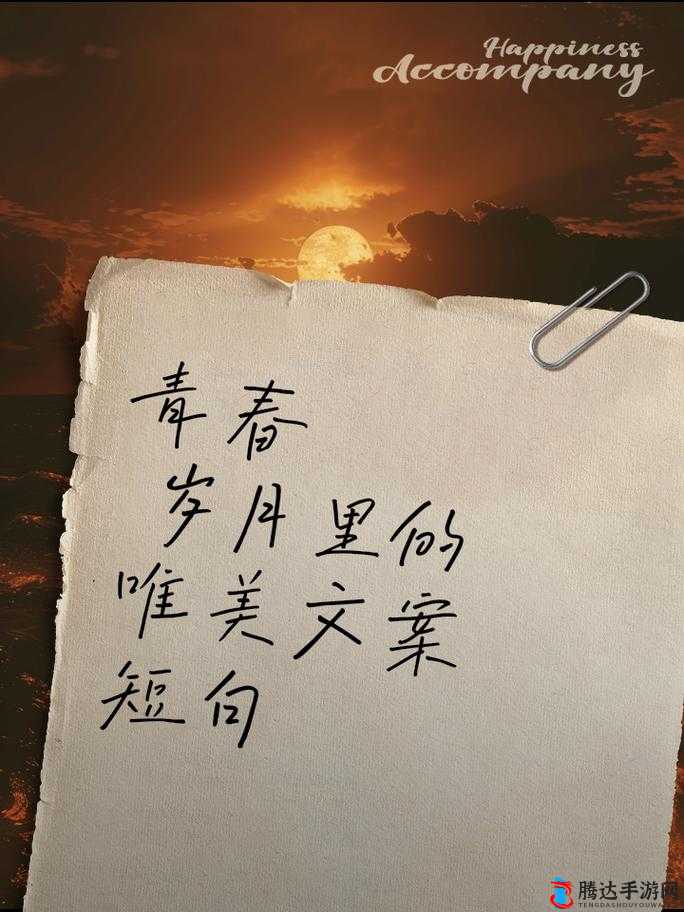 Happiness
Accompany
青春
岁月里的
唯美文案
短句
腾达手游网
TENGDASHOUYOUWANG